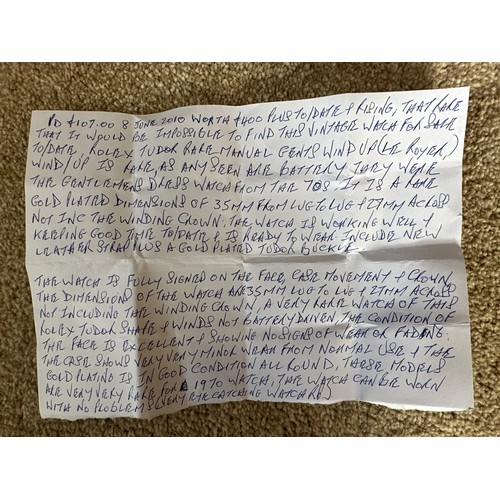 PD £107.00 8 JUNE 2010 WORTH £400 PLUS TO/DATE & RISING, THAT RARE
THAT IT WOULD BE IMPOSSIBLE TO FIND THIS VINTAGE WATCH FOR SALE
TO/DATE, ROLEX TUDOR RARE MANUAL GENTS WIND UP (LE ROYER,)
WIND/UP IS RARE, AS ANY SEEN ARE BATTERY THEY WERE
THE GENTLEMENS DRESS WATCH FROM THE 70S. IT IS A RARE
GOLD PLATED DIMENSIONS OF 35MM FROM LUG TO LUG & 27MM ACROSS
NOT INC THE WINDING CROWN. THE WATCH IS WORKING WELL &
KEEPING GOOD TIME TO/DATE & IS READY TO WEAR INCLUDE NEW
LEATHER STRAP PLUS A GOLD PLATED TUDOR BUCKLE.
THE WATCH IS FULLY SIGNED ON THE FACE, CASE MOVEMENT & CROWN,
THE DIMENSIONS OF THE WATCH ARE 35MM LUG TO LUG & 27MM ACROSS
NOT INCLUDING THE WINDING CROWN, A VERY RARE WATCH OF THIS
ROLEX TUDOR SHAPE & WINDS NOT BATTERY DRIVEN, THE CONDITION OF
THE FACE IS EXCELLENT & SHOWING NO SIGNS OF WEAR OR FADING.
THE CASE SHOWS VERY VERY MINOR WEAR FROM NORMAL USE & THE
GOLD PLATING IS IN GOOD CONDITION ALL ROUND, THESE MODELS
ARE VERY VERY RARE FOR A 1970 WATCH, THE WATCH CAN BE WORN
WITH NO PROBLEMS (VERY EYE CATCHING WATCH